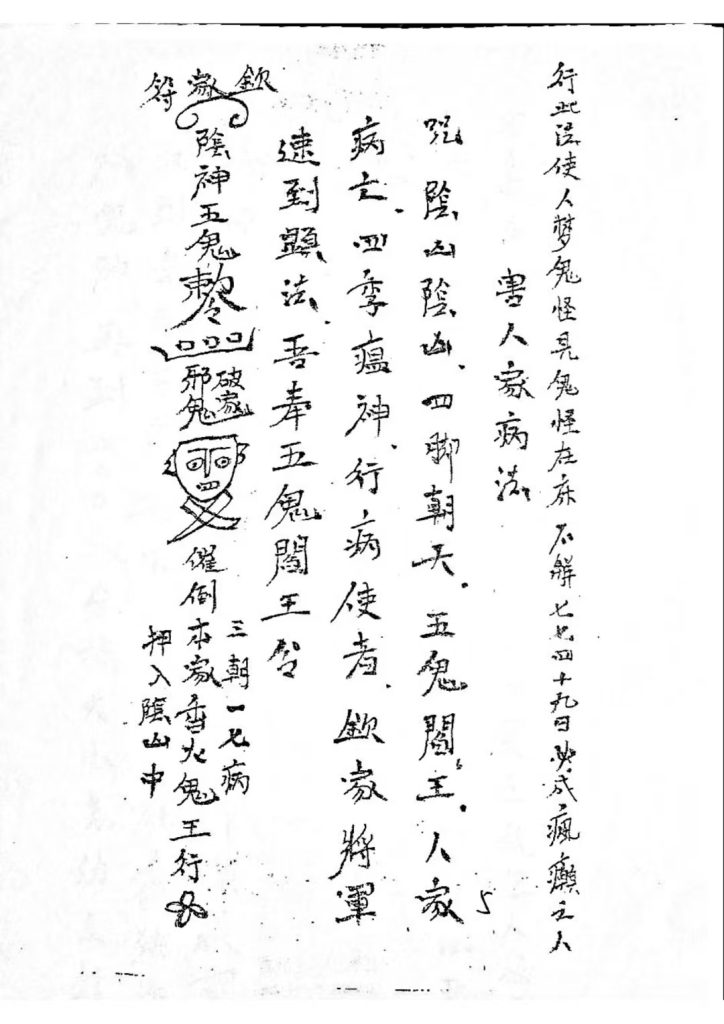 行此法使人梦鬼怪見鬼怪在床不解七七四十九日必成瘋癲之人
害人家病法
咒陰山陰山四脚朝天五鬼閻王人家
5
病亡四季瘟神行病使者欽家將軍
速到顕法吾奉五鬼閻王令
欽家符
陰神五鬼
破家
邪鬼
催倒本家香火鬼王行
三朝一七病
押入陰山中